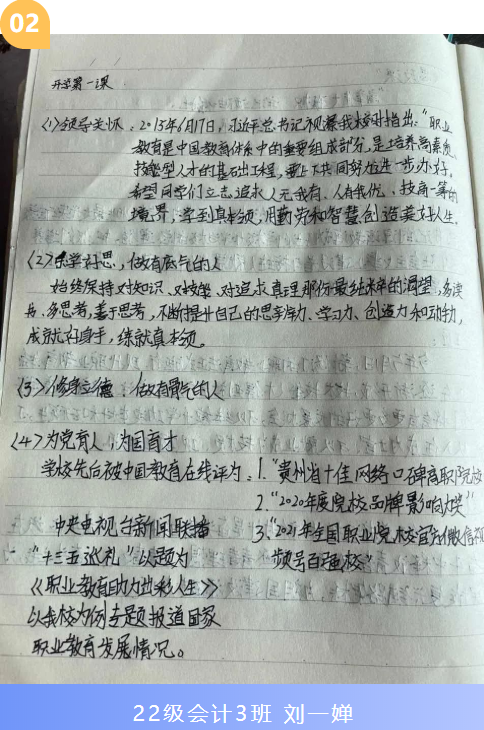 02
开学第一课
(1)领导关怀：2015年6月17日，习近平总书记视察我校时指出："职业
教育是中国教育体系中的重要组成部分，是培养高素质
技能型人才的基础工程，要上下共同努力进一步办好。
希望同学们立志追求人无我有、人有我优、技高一筹的
境界，学到真本领，用勤劳和智慧创造美好人生。
(2)乐学好思，做有底气的人
始终保持对知识、对技能、对追求真理那份最纯粹的渴望，多读
书、多思考，善于思考，不断提升自己的思考力、学习力、创造力和动力，
成就好身手，练就真本领。
(3)修身立德：做有骨气的人
(4)为党育人，为国育才
学校先后被中国教育在线评为：1."贵州省十佳网络口碑高职院校
2."2020年度院校品牌影响力奖"
中央电视台新闻联播 3."2021年全国职业院校官方微信视
"十三五巡礼"以题为 频号百强校"
《职业教育助力出彩人生》
以我校为例专题报道国家
职业教育发展情况。
22级会计3班 刘一婵